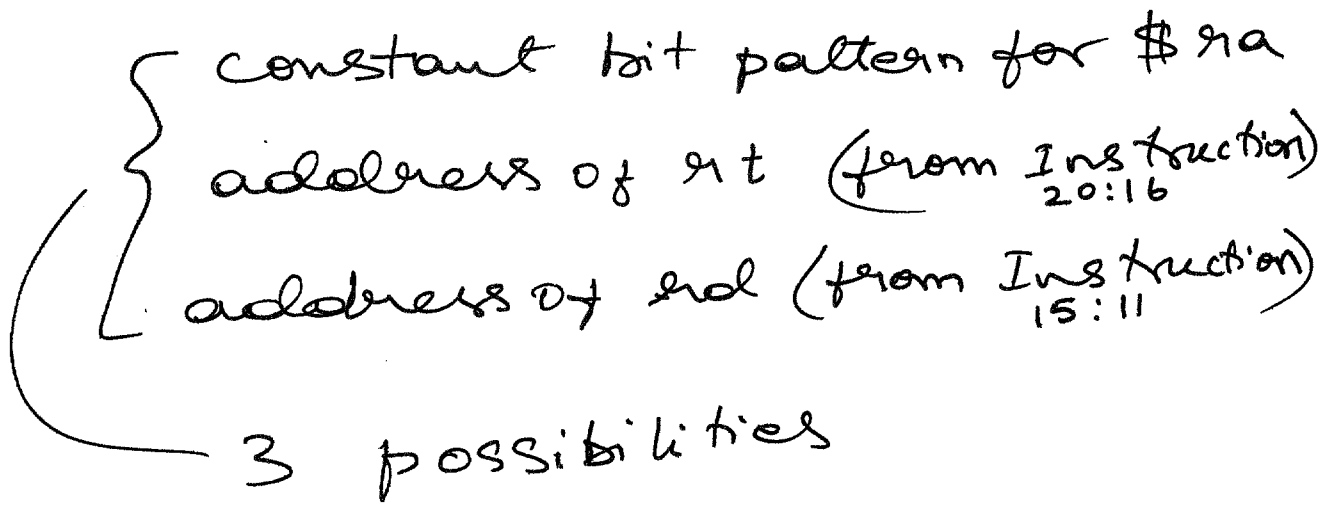 constant bit pattern for $ra
address of rt (from Instruction)
20:16
address of rd (from Instruction)
15:11
3 possibilities